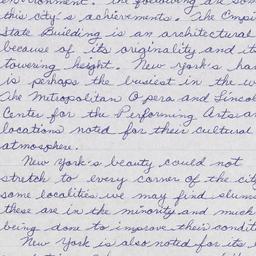 environment. The following are some
this city's achievements. The Empi
State Building is an architectural
because of its originality and it
towering height. New York's ha
is perhaps the busiest in the w
The Metropolitan Opera and Lincol
Center for the Performing Arts a
locations noted for their cultural
atmosphere.
New York's beauty could not
stretch to every corner of the cit
some localities we may find slums
these are in the minority and much
being done to improve their condit
New York is also noted for its